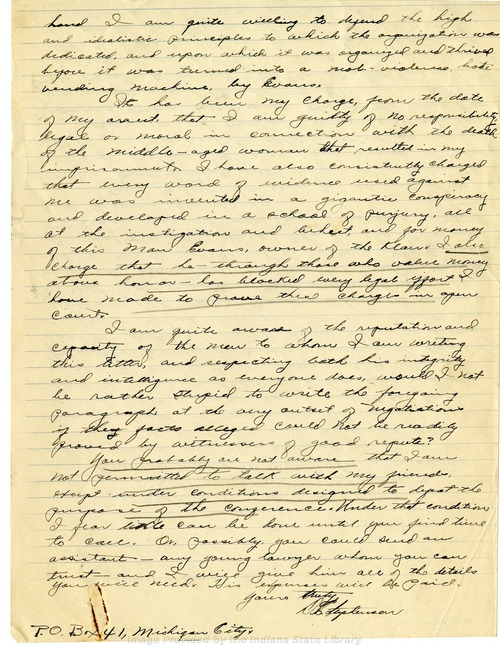 hand I am quite willing to defend the high
and idealistic principles to which the organization was
dedicated, and upon which it was organized and thrived
before it was turned into a mob-violence, hate
vending machine, by Evans.
It has been my charge, from the date
of my arrest, that I am guilty of no responsibility,
legal or moral in connection with the death
of the middle-aged woman that resulted in my
imprisonment. I have also consistently charged
that every word of evidence used against
me was invented in a gigantic conspiracy
and developed in a school of perjury, all
at the instigation and behest and for money
of this man Evans, owner of the Klan. I also
charge that he through those who value money
above honor - has blocked every legal effort I
have made to prove these charges in open
court.
I am quite aware of the reputation and
capacity of the man to whom I am writing
this letter, and respecting both his integrity
and intelligence as everyone does, would I not
be rather stupid to write the foregoing
paragraph at the very outset of negotiations
if they facts alleged could not be readily
proved by witnesses of good repute?
You probably are not aware that I am
not permitted to talk with my friends
except under conditions designed to defeat the
purpose of the conference. Under that condition
I fear little can be done until you find time
to call. Or, possibly, you could send an
assistant - any young lawyer whom you can
trust - and I will give him all of the details
you will need. His expenses will be paid.
Yours truly
D C Stephenson
P.O. Box 41, Michigan City.
Image Provided by the Indiana State Library